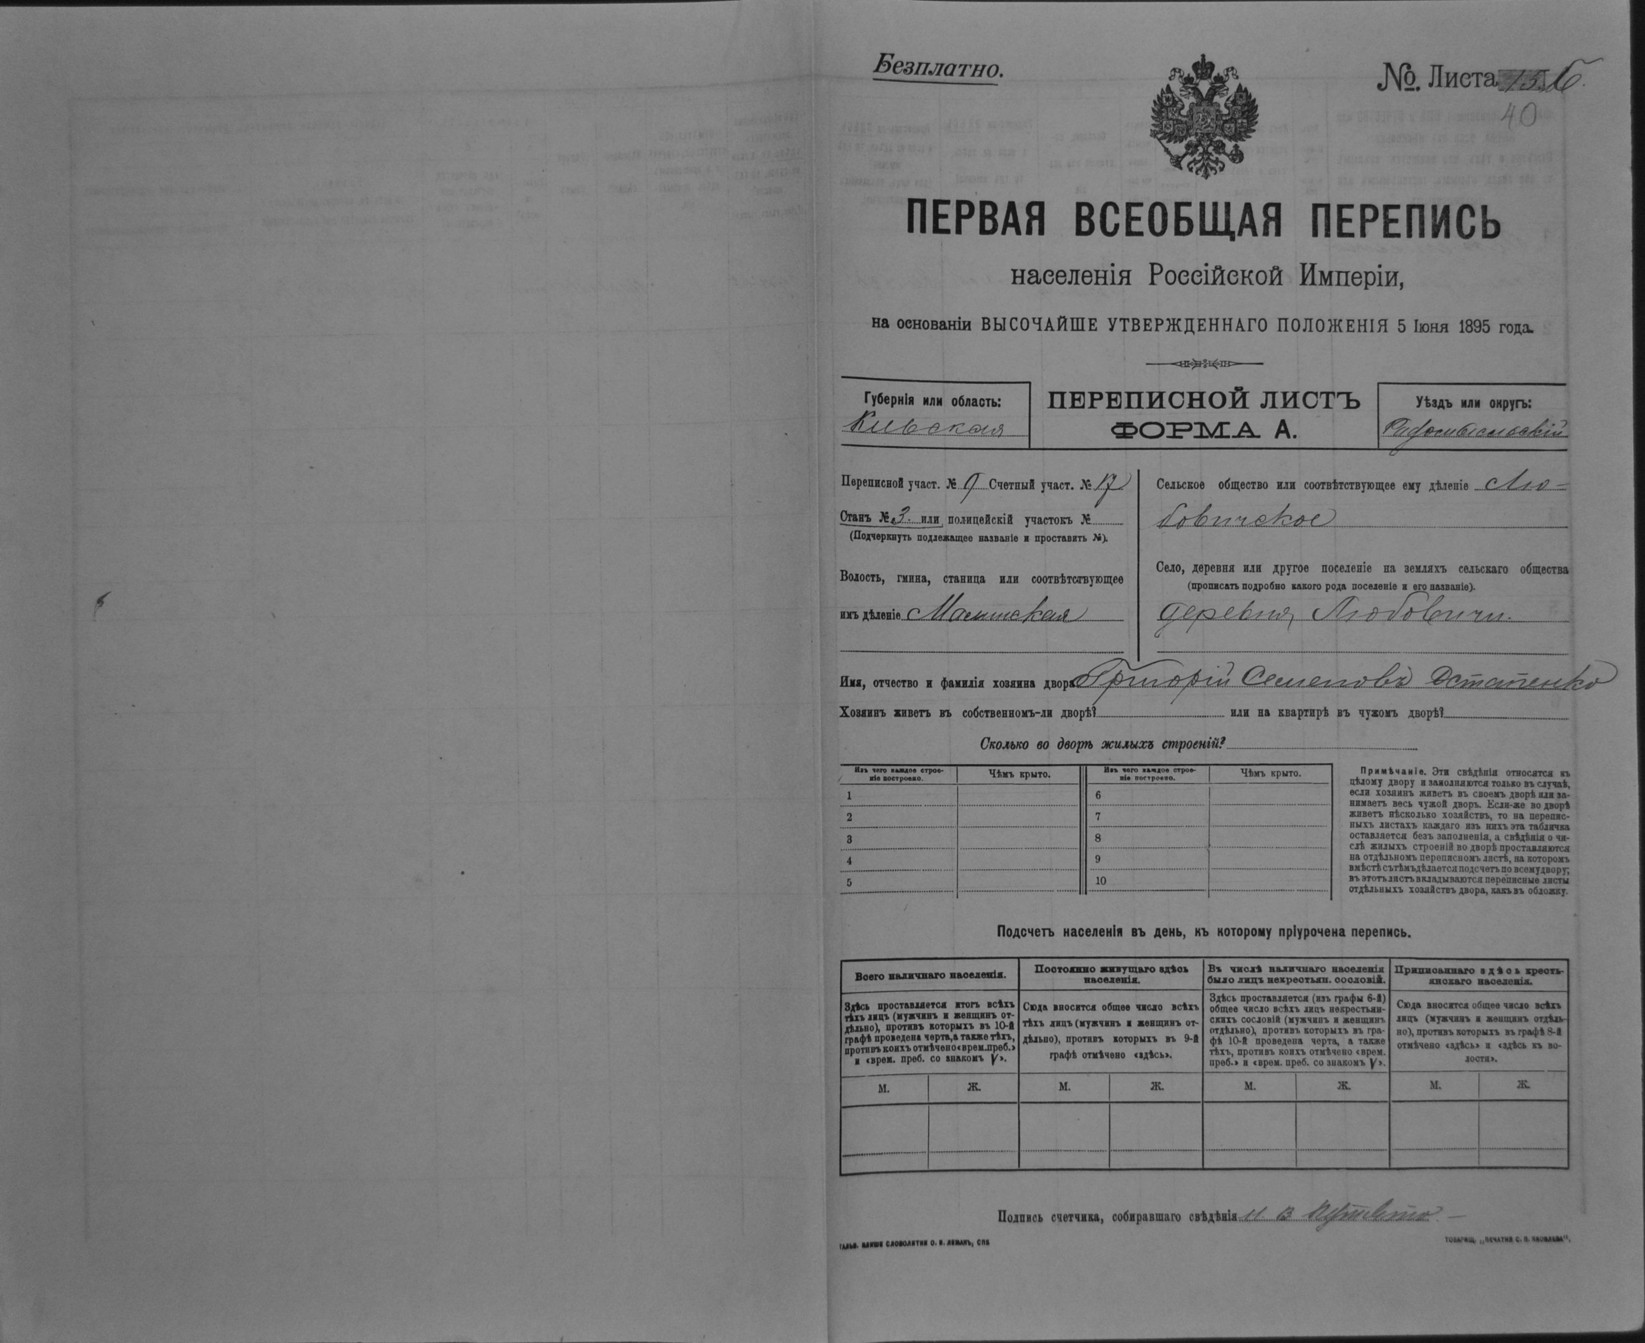 Безплатно.
№. Листа 15 Б.
40
ПЕРВАЯ ВСЕОБЩАЯ ПЕРЕПИСЬ
населенія Россійской Имперіи,
на основаніи ВЫСОЧАЙШЕ УТВЕРЖДЕННАГО ПОЛОЖЕНІЯ 5 Іюня 1895 года.
Губернія или область:
Кіевская
ПЕРЕПИСНОЙ ЛИСТЪ
ФОРМА А.
Уѣздъ или округъ:
Радомысльскій
Переписной участ. № 9 Счетный участ. № 17
Станъ № 3 или полицейскій участокъ №
(Подчеркнуть подлежащее названіе и проставить №).
Волость, гмина, станица или соотвѣтствующее
имъ дѣленіе Малинская
Сельское общество или соотвѣтствующее ему дѣленіе Лю-
бовичское
Село, деревня или другое поселеніе на земляхъ сельскаго общества
(прописать подробно какого рода поселеніе и его названіе).
деревня Любовичи.
Имя, отчество и фамилія хозяина двора Григорій Семеновъ Остапенко
Хозяинъ живетъ въ собственномъ-ли дворѣ? или на квартирѣ въ чужомъ дворѣ?
Сколько во дворѣ жилыхъ строеній?
Изъ чего каждое строе-
ніе построено.
Чѣмъ крыто.
Изъ чего каждое строе-
ніе построено.
Чѣмъ крыто.
1
2
3
4
5
6
7
8
9
10
Примѣчаніе. Эти свѣдѣнія относятся къ
цѣлому двору и заполняются только въ случаѣ,
если хозяинъ живетъ въ своемъ дворѣ или за-
нимаетъ весь чужой дворъ. Если-же во дворѣ
живетъ нѣсколько хозяйствъ, то на перепис-
ныхъ листахъ каждаго изъ нихъ эта табличка
оставляется безъ заполненія, а свѣдѣнія о чи-
слѣ жилыхъ строеній во дворѣ проставляются
на отдѣльномъ переписномъ листѣ, на которомъ
вмѣстѣ съ тѣмъ дѣлается подсчетъ по всему двору;
въ этотъ листъ вкладываются переписные листы
отдѣльныхъ хозяйствъ двора, какъ въ обложку.
Подсчетъ населенія въ день, къ которому пріурочена перепись.
Всего наличнаго населенія.
Здѣсь проставляется итогъ всѣхъ
тѣхъ лицъ (мужчинъ и женщинъ от-
дѣльно), противъ которыхъ въ 10-й
графѣ проведена черта, а также тѣхъ,
противъ коихъ отмѣчено «врем. преб.»
и «врем. преб. со знакомъ V».
Постоянно живущаго здѣсь
населенія.
Сюда вносится общее число всѣхъ
тѣхъ лицъ (мужчинъ и женщинъ от-
дѣльно), противъ которыхъ въ 9-й
графѣ отмѣчено «здѣсь».
Въ числѣ наличнаго населенія
было лицъ некрестьян. сословій.
Здѣсь проставляется (изъ графы 6-й)
общее число всѣхъ лицъ некрестьян-
скихъ сословій (мужчинъ и женщинъ
отдѣльно), противъ которыхъ въ гра-
фѣ 10-й проведена черта, а также
тѣхъ, противъ коихъ отмѣчено «врем.
преб.» и «врем. преб. со знакомъ V».
Приписаннаго здѣсь кресть-
янскаго населенія.
Сюда вносится общее число всѣхъ
лицъ (мужчинъ и женщинъ отдѣль-
но), противъ которыхъ въ графѣ 8-й
отмѣчено «здѣсь» и «здѣсь въ во-
лости».
М. Ж. М. Ж. М. Ж. М. Ж.
Подпись счетчика, собиравшаго свѣдѣнія
СЛОВОЛИТНИ О. И. ЛЕМАНЪ, СПБ